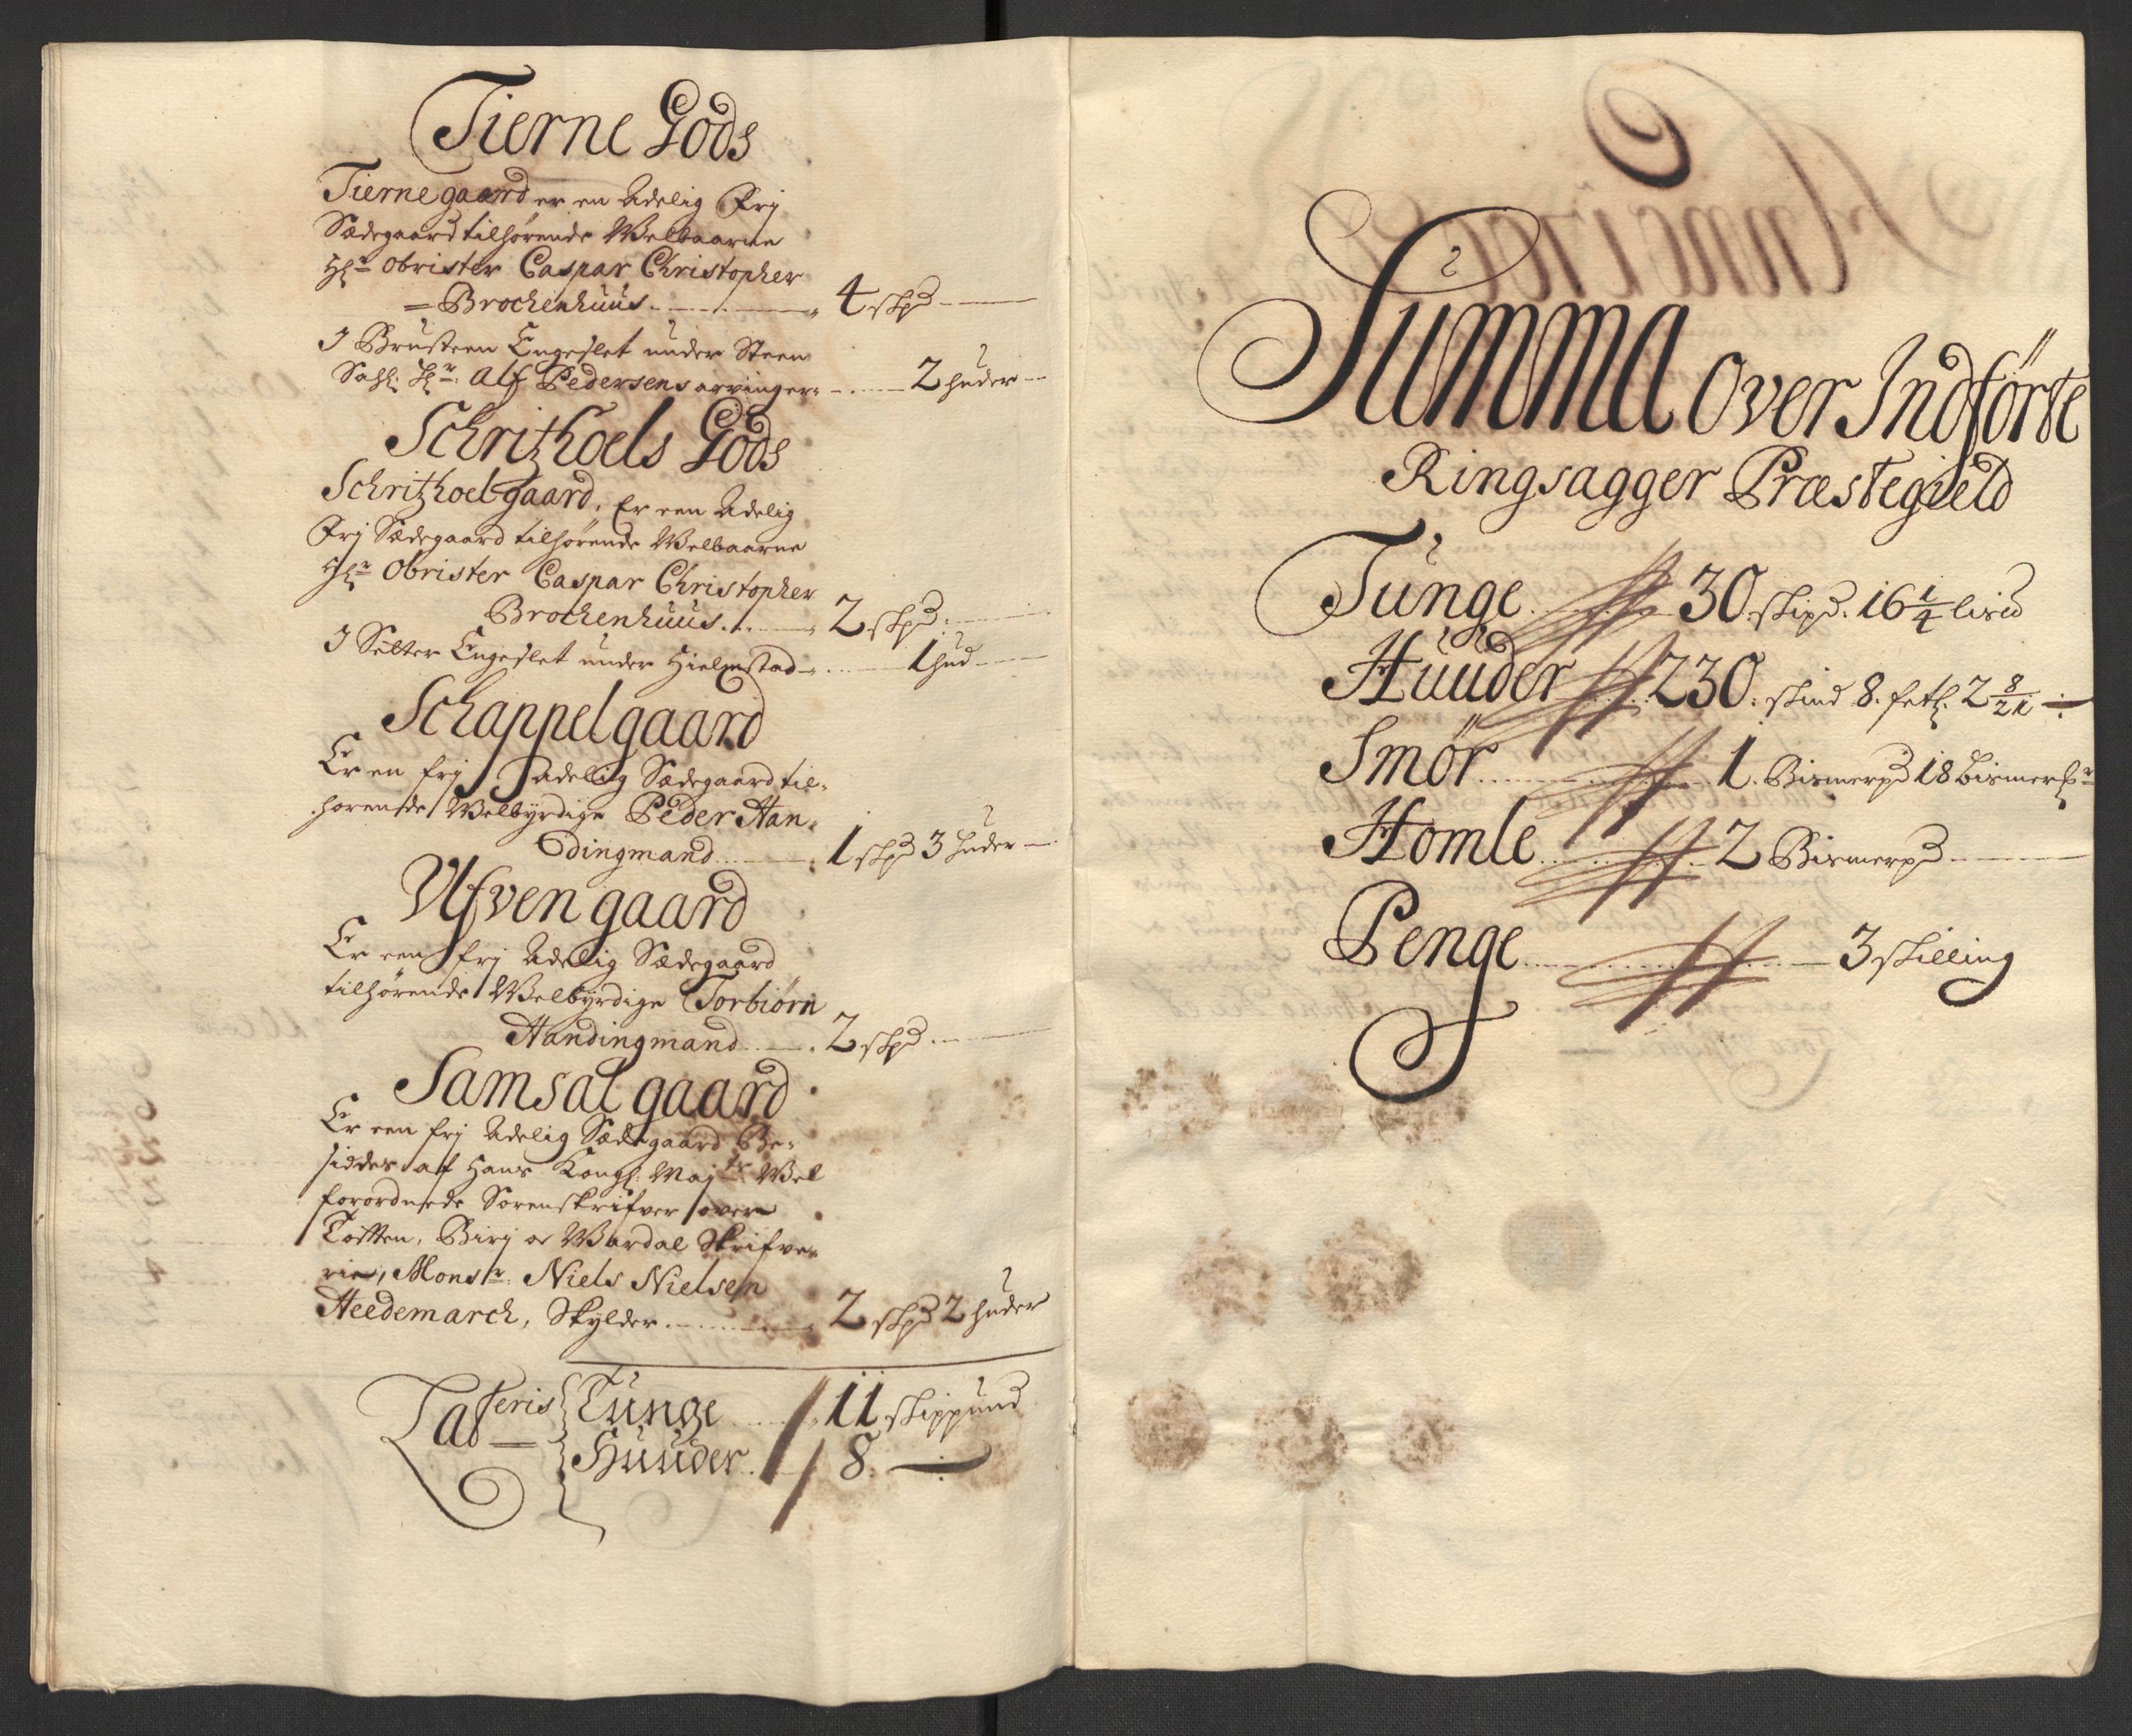 Tierne Gods
Tiernegaard er en Adelig Frj
Sædegaard tilhørende Welbaarne
Hr Obrister Caspar Christopher
= Brochenhuus 4 skp
I Brusteen Engeslet under Steen
Sahl. Hr: Alf Pedersens arvinger 2 huder
Schritzhoels Gods
Schritzhoel gaard, Er een Adelig
Frj Sædegaard tilhørende Welbaarne
Hr Obrister Caspar Christopher
Brochenhuus 2 skp
I Selter Engeslet under Hielmstad 1 hud
Schappelgaard
Er en frj Adelig Sædegaard til-
hørende Welbyrdige Peder Han-
dingmand 1 skp 3 huder
Ulfven gaard
Er een frj Adelig Sædegaard
tilhørende Welbyrdige Torbiørn
Handingmand 2 skp
Samsal gaard
Er een frj Adelig Sædegaard Be-
siddes af Hans Kongl: Maj:ts Wel
forordnede Sorenskrifver over
Toften, Birj oc Wardal Skrifve-
rie, Monsr: Niels Nielsen
Heedemarch, Skylder 2 skp 2 huder
Lateris Tunge 11 skippund
Huuder 8
Summa over Indførte
Ringsagger Præstegield
Tunge 30 skip. 16 1/4 lis
Huuder 230. skind 8. fetl. 2 8/21
Smør 1. Bismerp 18 bismermr
Homle 2 Bismerp
Penge 3 skilling